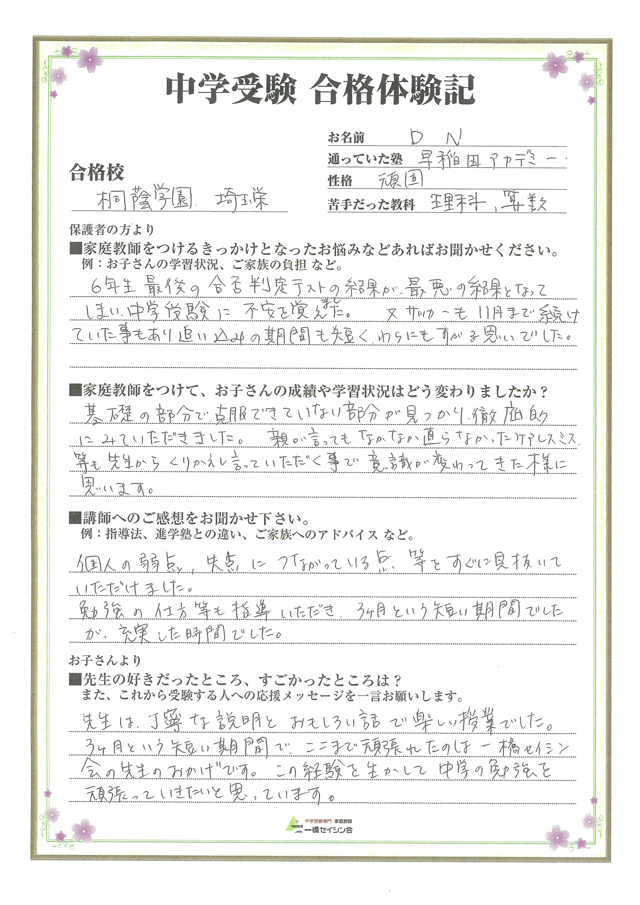 中学受験 合格体験記
お名前 D N
通っていた塾 早稲田アカデミー
合格校
性格 頑固
桐蔭学園 埼玉栄
苦手だった教科 理科、算数
保護者の方より
■家庭教師をつけるきっかけとなったお悩みなどあればお聞かせください。
例：お子さんの学習状況、ご家族の負担 など。
6年生最後の合否判定テストの結果が、最悪の結果となって
しまい、中学受験に不安を覚えました。 又サッカーも11月まで続け
ていた事もあり追い込みの期間も短く、わらにもすがる思いでした。
■家庭教師をつけて、お子さんの成績や学習状況はどう変わりましたか？
基礎の部分で克服できていない部分が見つかり、徹底的
にみていただきました。 親が言ってもなかなか直らなかったケアレスミス
等も先生からくりかえし言っていただく事で意識が変わってきた様に
思います。
■講師へのご感想をお聞かせ下さい。
例：指導法、進学塾との違い、ご家族へのアドバイス など。
個人の弱点、失点につながっている点、等をすぐに見抜いて
いただけました。
勉強の仕方等も指導いただき、3ヶ月という短い期間でした
が、充実した時間でした。
お子さんより
■先生の好きだったところ、すごかったところは？
また、これから受験する人への応援メッセージを一言お願いします。
先生は、丁寧な説明とおもしろい話で楽しい授業でした。
3ヶ月という短い期間で、ここまで頑張れたのは一橋セイシン
会の先生のおかげです。この経験を生かして中学の勉強を
頑張っていきたいと思っています。
中学受験専門 家庭教師
一橋セイシン会